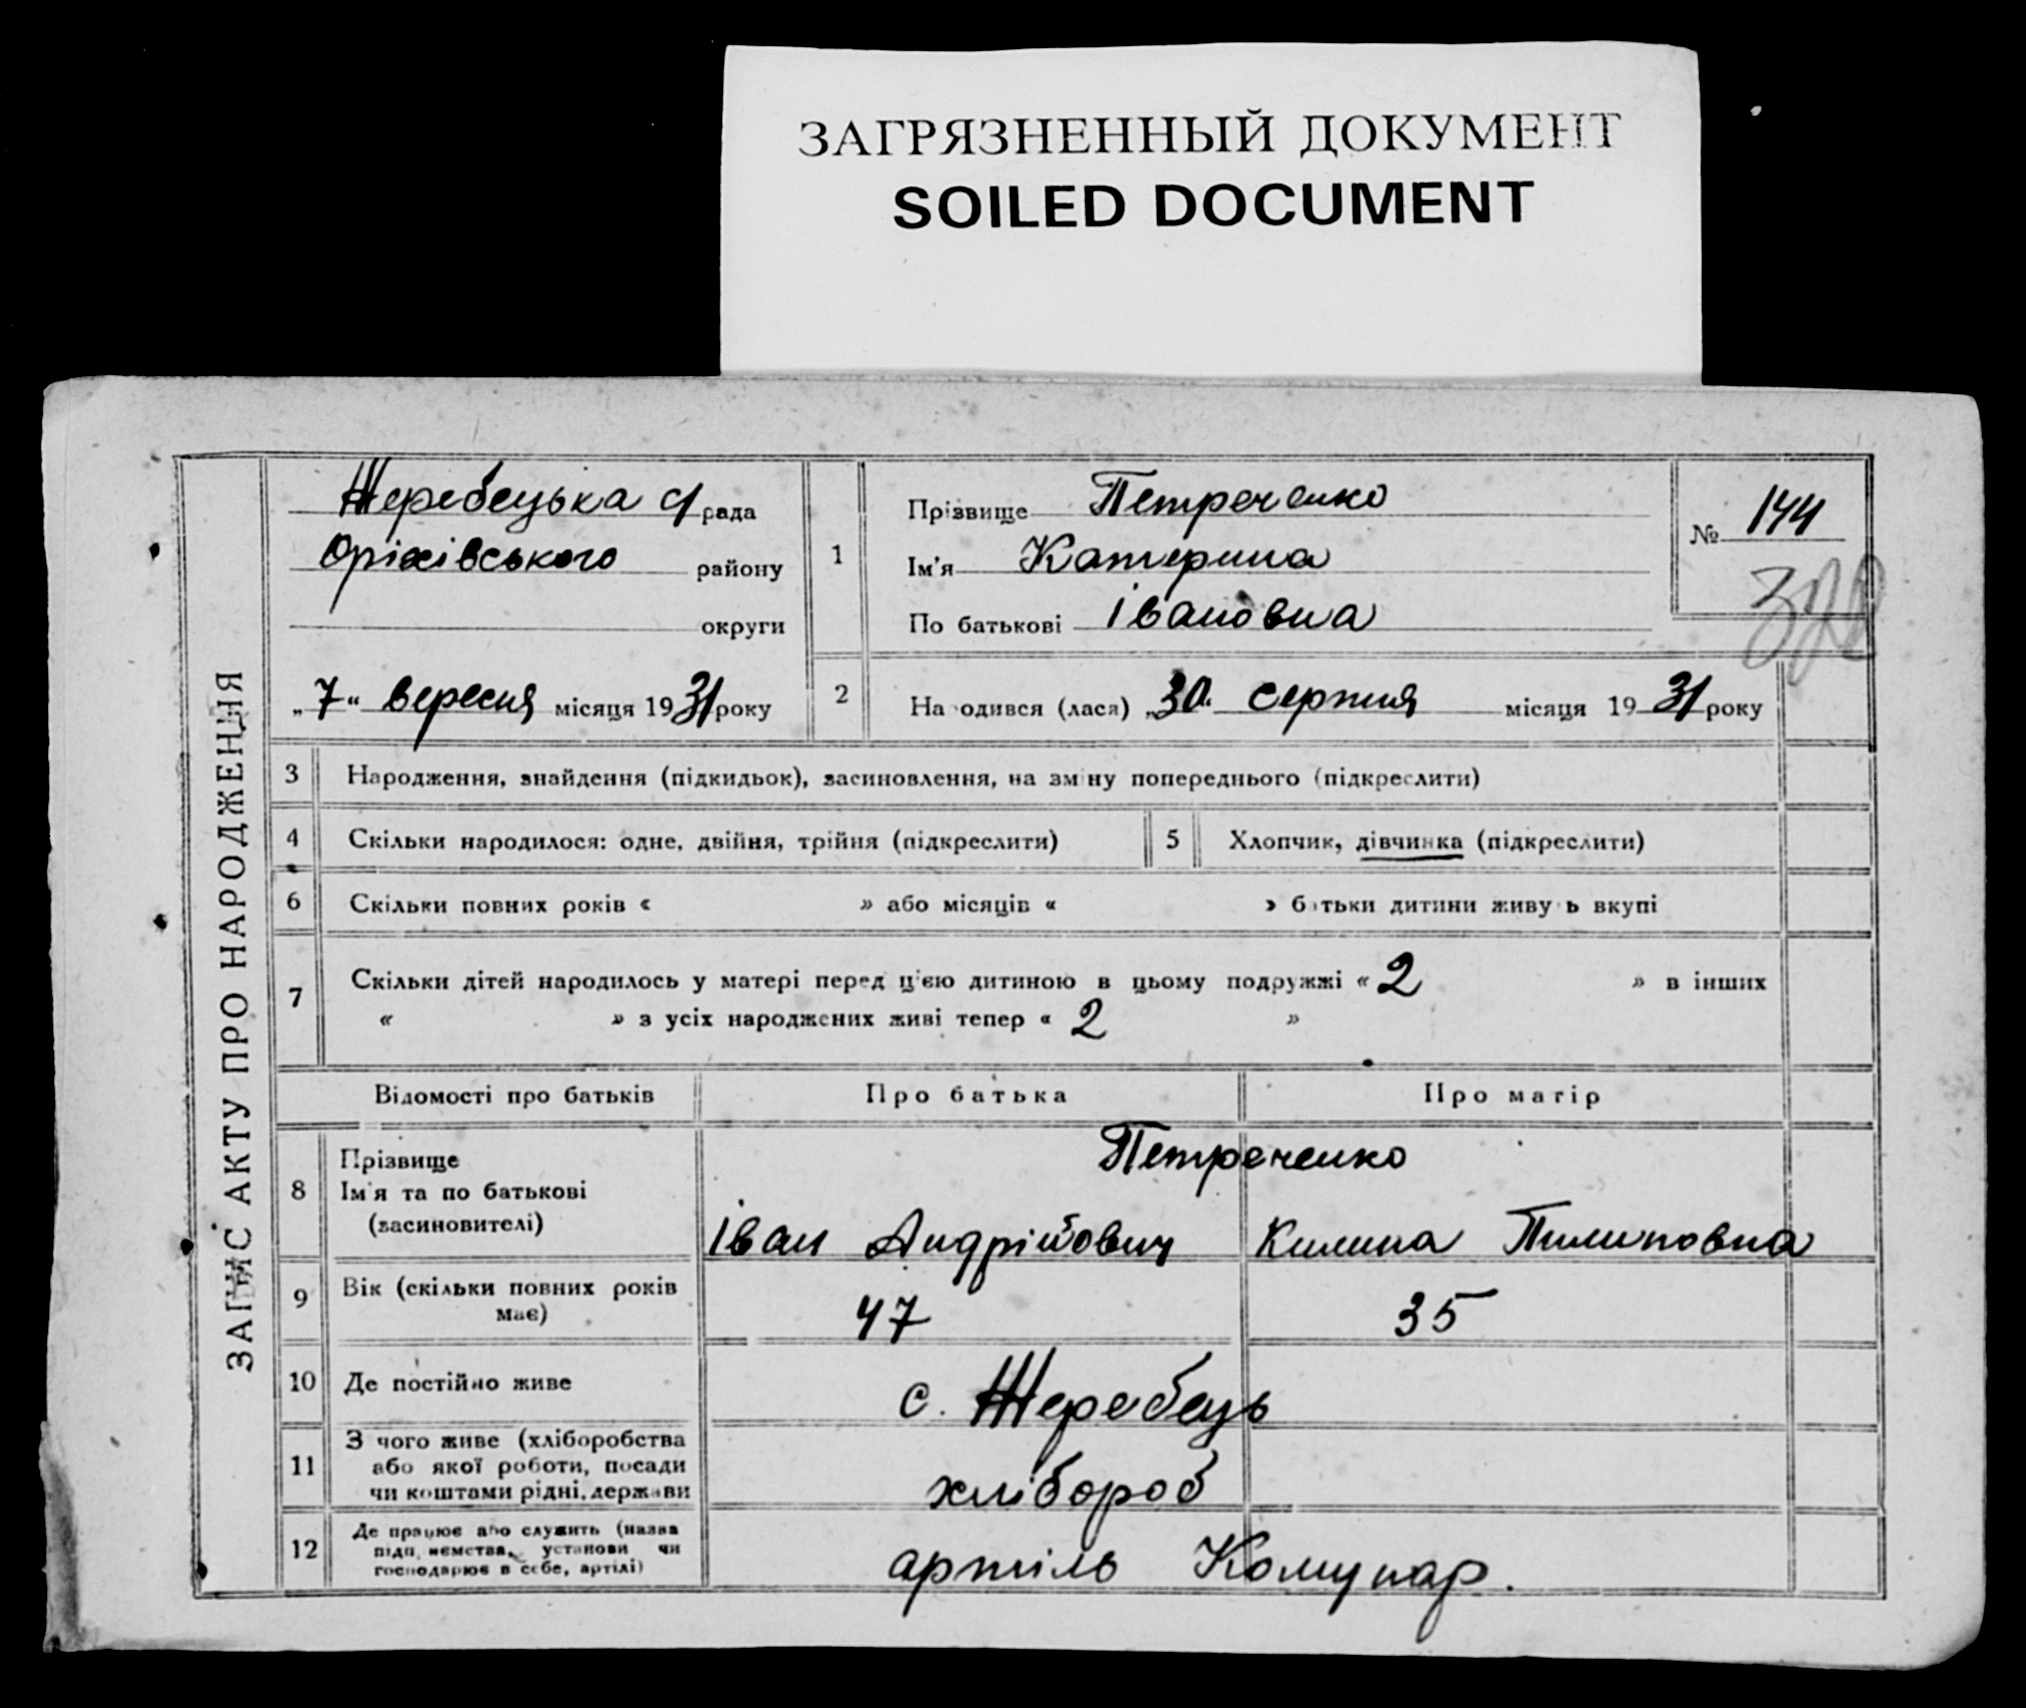 ЗАГРЯЗНЕННЫЙ ДОКУМЕНТ
SOILED DOCUMENT
ЗАПИС АКТУ ПРО НАРОДЖЕННЯ
Жеребецька с/рада
Оріхівського району
округи
„7“ вересня місяця 1931 року
1
Прізвище Петреченко
Ім'я Катерина
По батькові Івановна
№ 144
2 На одився (лася) „30“ серпня місяця 1931 року
3 Народження, знайдення (підкидьок), засиновлення, на зміну попереднього (підкреслити)
4 Скільки народилося: одне, двійня, трійня (підкреслити) 5 Хлопчик, дівчинка (підкреслити)
6 Скільки повних років « » або місяців « » батьки дитини живуть вкупі
7 Скільки дітей народилось у матері перед цією дитиною в цьому подружжі « 2 » в інших
« » з усіх народжених живі тепер « 2 »
Відомості про батьків Про батька Про матір
8 Прізвище Петреченко
Ім'я та по батькові
(засиновителі) Іван Андрійович Килина Пилиповна
9 Вік (скільки повних років
має) 47 35
10 Де постійно живе с. Жеребець
11 З чого живе (хліборобства
або якої роботи, посади
чи коштами рідні, держави хлібороб
12 Де працює або служить (назва
підприємства, установи чи
господарює в себе, артілі) артіль Комунар.